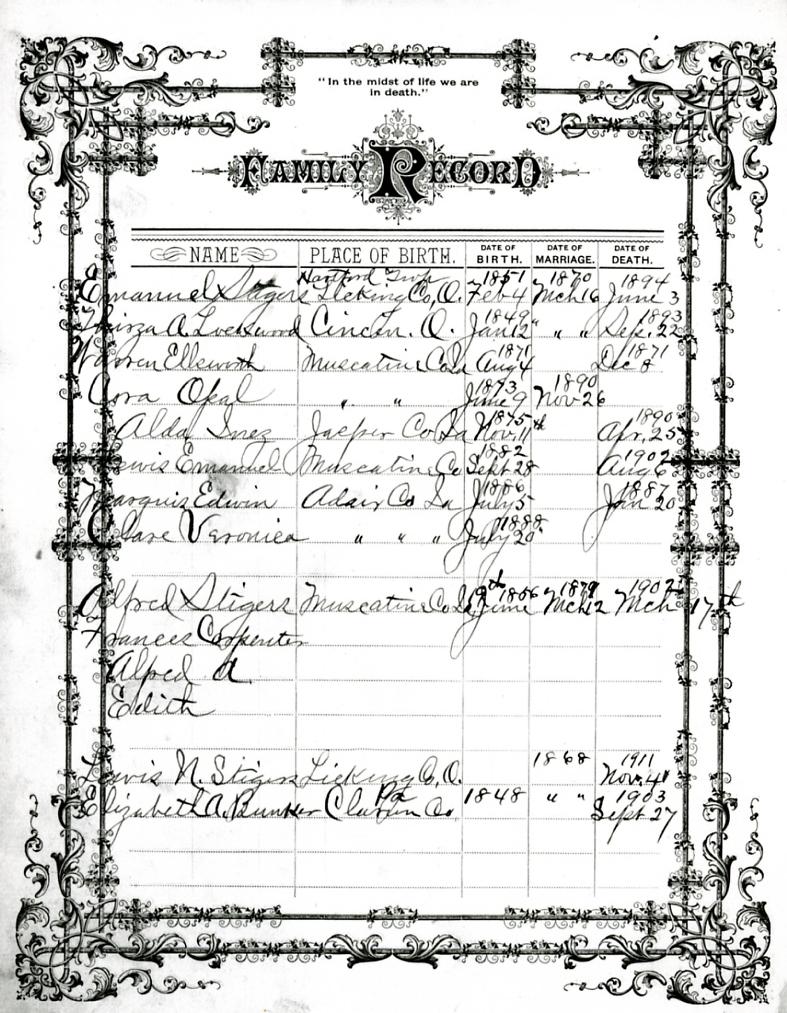 "In the midst of life we are
in death."
FAMILY RECORD
NAME PLACE OF BIRTH. DATE OF BIRTH. DATE OF MARRIAGE. DATE OF DEATH.
Hartford Twp 1851 1870 1894
Emanuel Stigers Licking Co, O. Feb 4 Mch 16 June 3
1849 1893
Thirza A. Lockwood Cincin. O. Jan 12 " " Sep. 22
1871 1871
Warren Ellsworth Muscatine Co Ia Aug 4 Dec 8
1873 1890
Cora Opal " " June 9 Nov 26
1875 1890
Alda Inez Jasper Co Ia Nov. 11th Apr. 25
1882 1902
Lewis Emanuel Muscatine Co Sept 28 Aug 6
1886 1887
Marquis Edwin Adair Co Ia July 5 Jan 20
1888
Clare Veronica " " " July 20
9th 1856 1879 1902
Alfred Stigers Muscatine Co Ia June Mch 12 Mch 17th
Frances Carpenter
Alfred A
Edith
1868 1911
Lewis N. Stigers Licking Co, O. Nov. 4
Pa 1848 " " 1903
Elizabeth A. Bunker Co. Sept 27